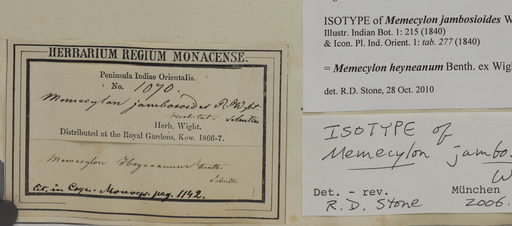 HERBARIUM REGIUM MONACENSE.
Peninsula Indiae Orientalis.
No. 1070.
Memecylon jambosioides R. Wight
Herb. Wight.
Distributed at the Royal Gardens, Kew. 1866-7.
Memecylon Heyneanum Benth.
Cit. in Cogn. Monogr. pag. 1142.
ISOTYPE of Memecylon jambosioides W
Illustr. Indian Bot. 1: 215 (1840)
& Icon. Pl. Ind. Orient. 1: tab. 277 (1840)
= Memecylon heyneanum Benth. ex Wigh
det. R.D. Stone, 28 Oct. 2010
ISOTYPE of
Memecylon jambos
W
Det. - rev. München
R. D. Stone 2006.